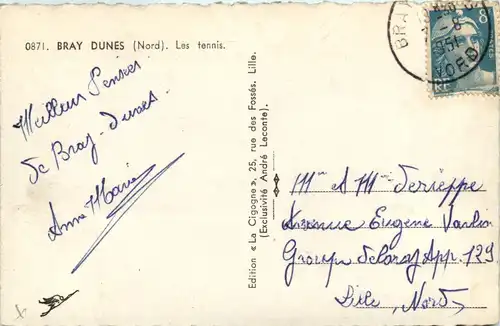 0871. BRAY DUNES (Nord). Les tennis.
Meilleurs Pensées
de Bray-Dunes
Anne Marie
Edition « La Cigogne », 25, rue des Fossés. Lille.
(Exclusivité André Leconte).
BRAY
8
1951
NORD
Mme & Mr Derieppe
Avenue Eugène Varlin
Groupe Delory App. 129
Lille, Nord